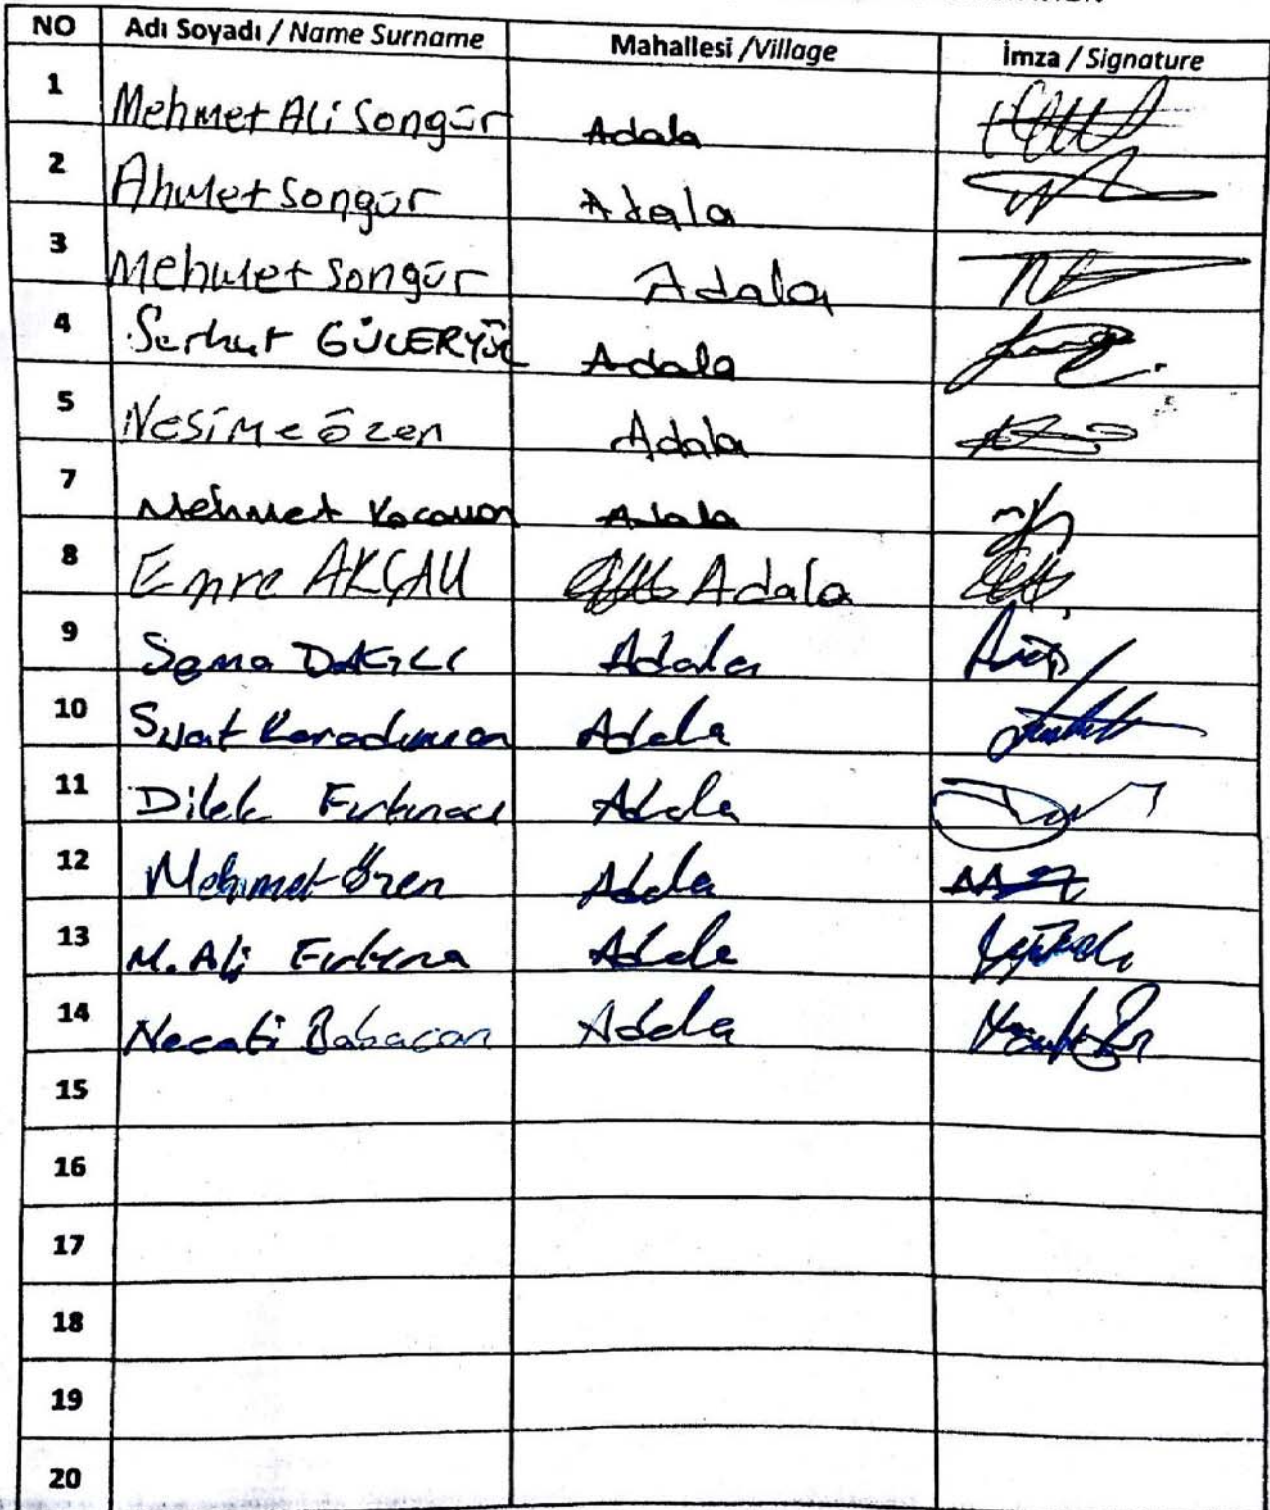 NO Adı Soyadı / Name Surname Mahallesi / Village İmza / Signature
1 Mehmet Ali Songür Adala
2 Ahmet Songür Adala
3 Mehmet Songür Adala
4 Serkut GÜLERYÜZ Adala
5 Nesime Özen Adala
7 Mehmet Kocaman Adala
8 Emre AKÇAU Adala
9 Sema Adala
10 Suat Karaduman Adala
11 Dilek Adala
12 Mehmet Özen Adala
13 M. Ali Fırtına Adala
14 Necati Babacan Adala
15
16
17
18
19
20